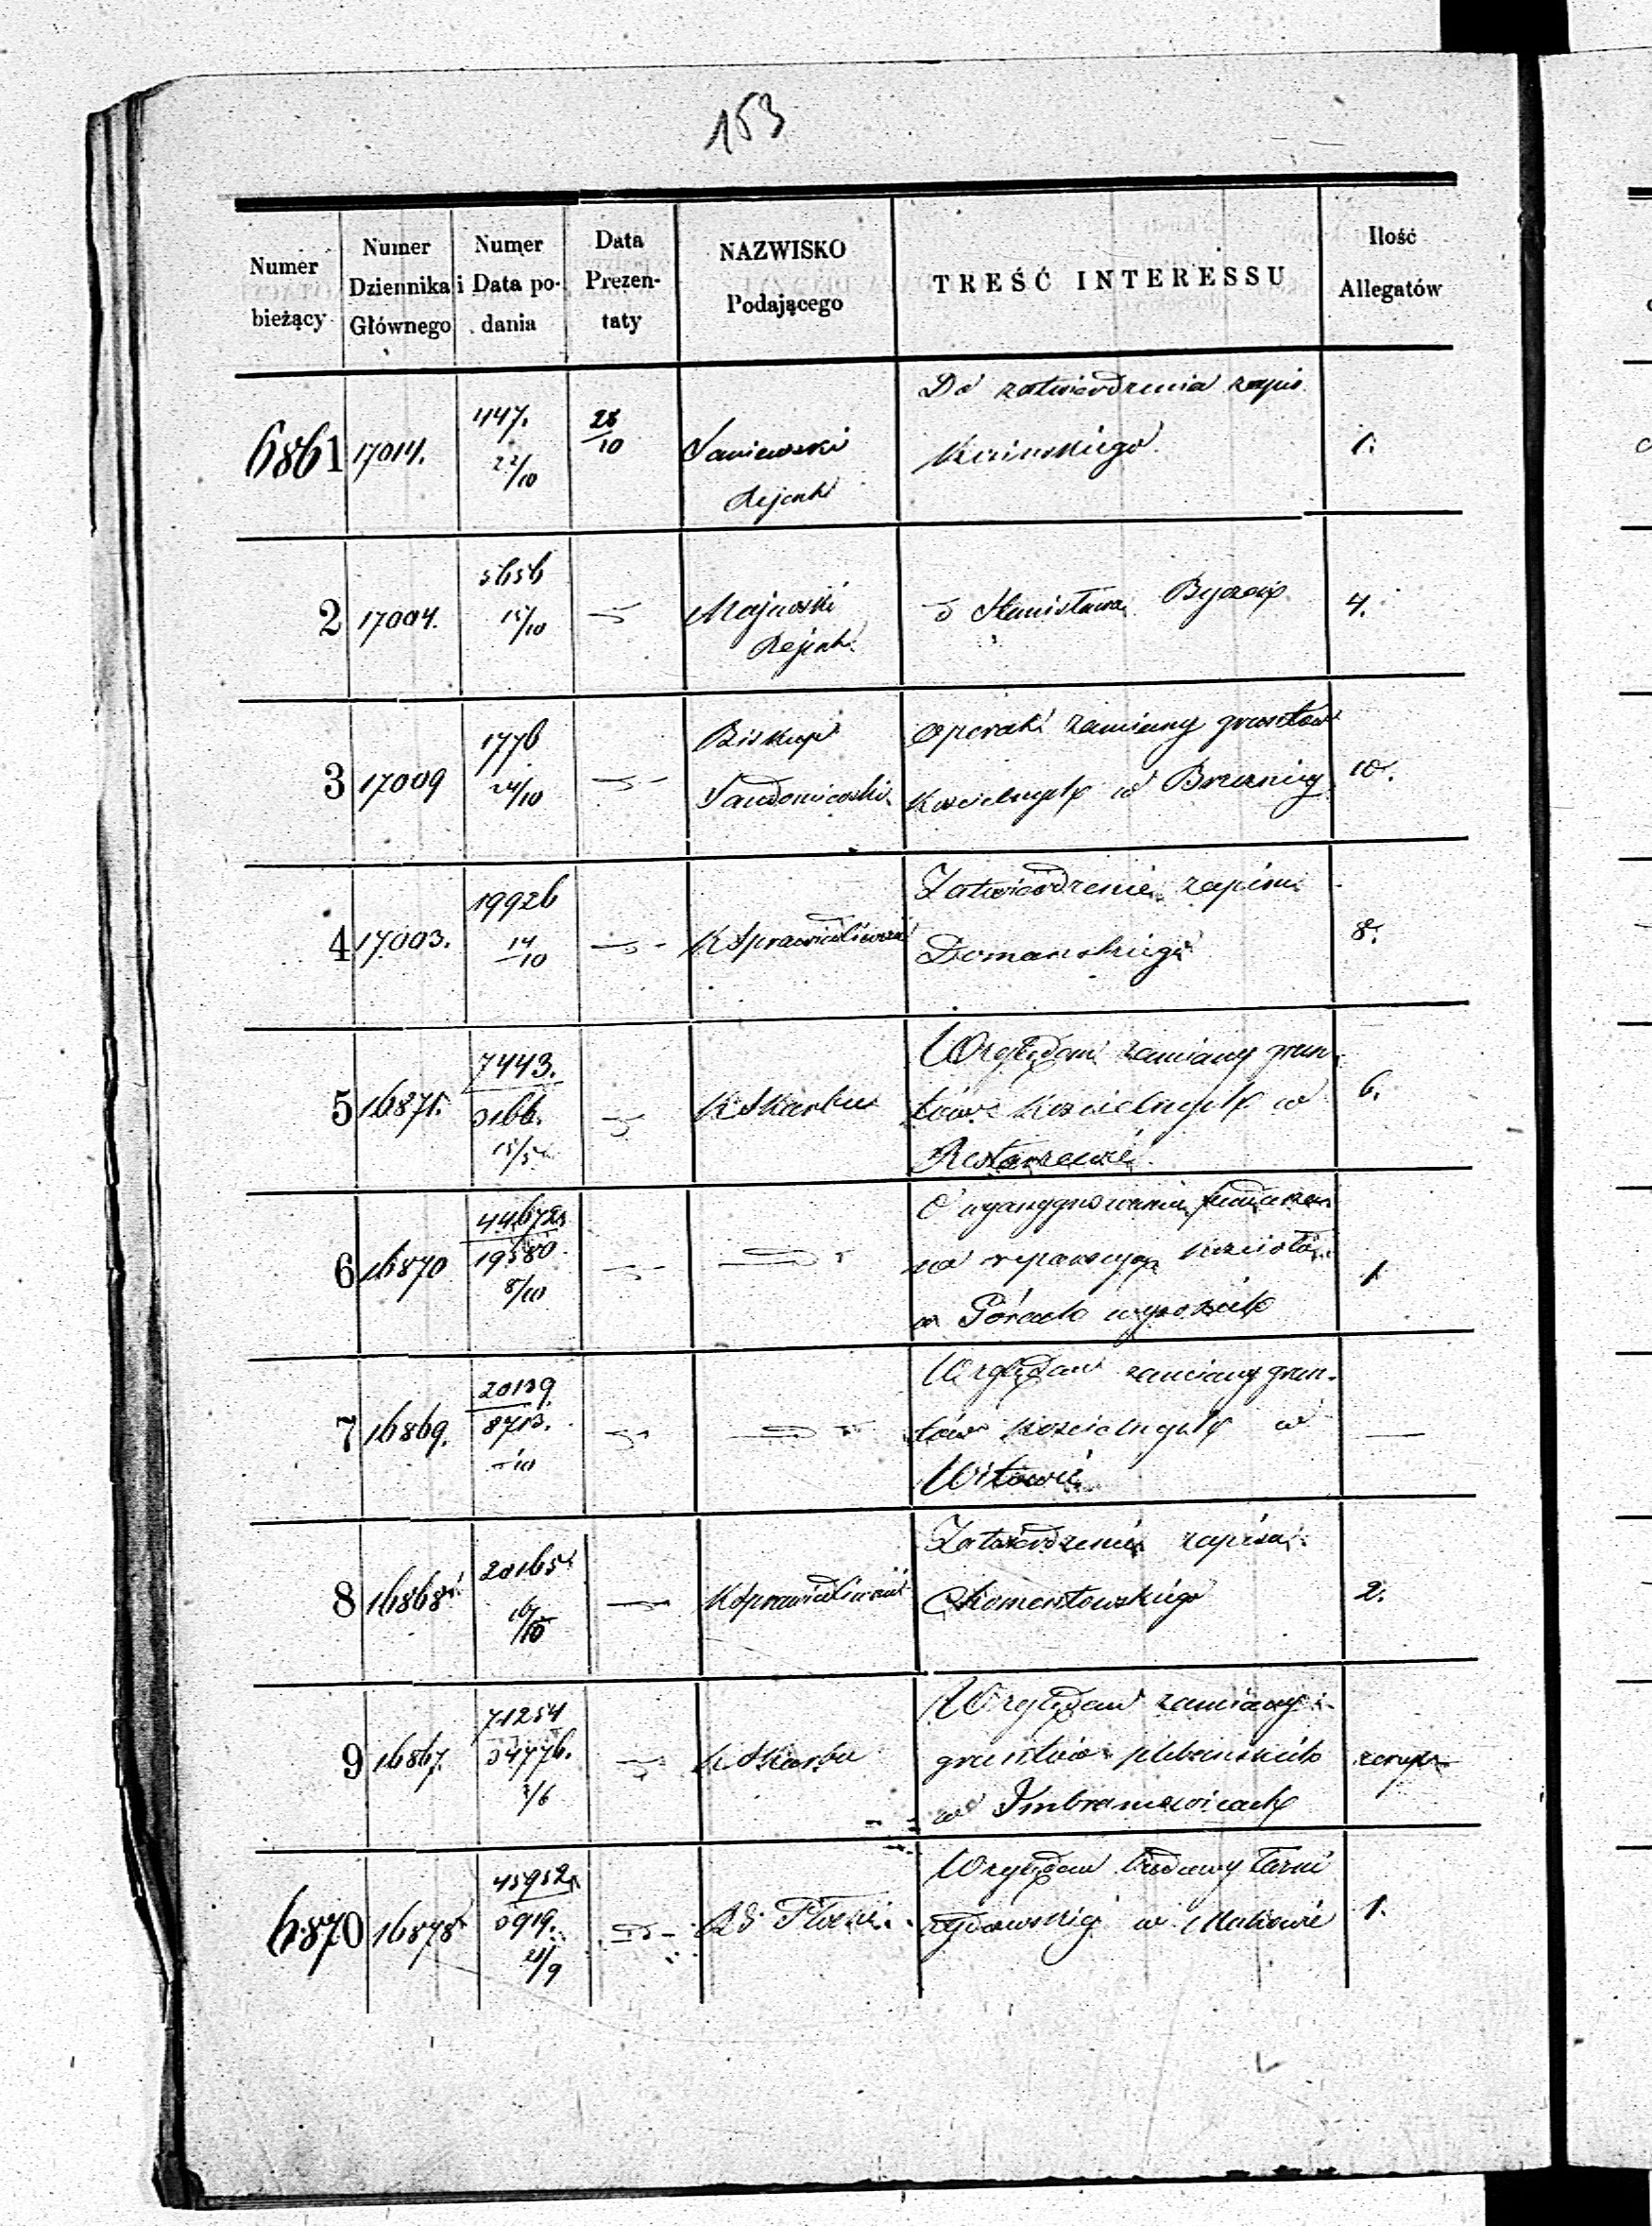 153
Numer bieżący
Numer Dziennika Głównego
Numer i Data podania
Data Prezentaty
NAZWISKO Podającego
TREŚĆ INTERESSU
Ilość Allegatów
6861 17014. 447. 22/10 28/10 Rejent
Do zatwierdzenia zapis
1.
2 17004. 5656 15/10 Majewski Rejent
Stanisława
4.
3 17009 1776 24/10 Biskup Sandomierski
Operat zamiany gruntów
Kościelnych w Brzeznicy
10.
4 17003. 19926 14/10 K Sprawiedliwości
Zatwierdzenie zapisu
Domanskiego
8.
5 16871. 7443. 3166. 15/5 K Skarbu
Względem zamiany grun
tów Kościelnych w
Restarzewie
6.
6 16870 44672 19580 8/10
O wyasygnowanie
na reparacyą Kościoła
w Górach wysokich
1
7 16869. 20139 8713. /10
Względem zamiany grun-
tów Kościelnych w
Witowie
8 16868 20165 16/10 K Sprawiedliwości
Zatwierdzenie zapisu
Chomentowskiego
2.
9 16867. 71254 34776. /6 K Skarbu
Względem zamiany
gruntów plebanskich
w Imbramowicach
6870 16878 45952 0919. 21/9 Płocki
Względem budowy łazni
żydowskiej w Makowie
1.